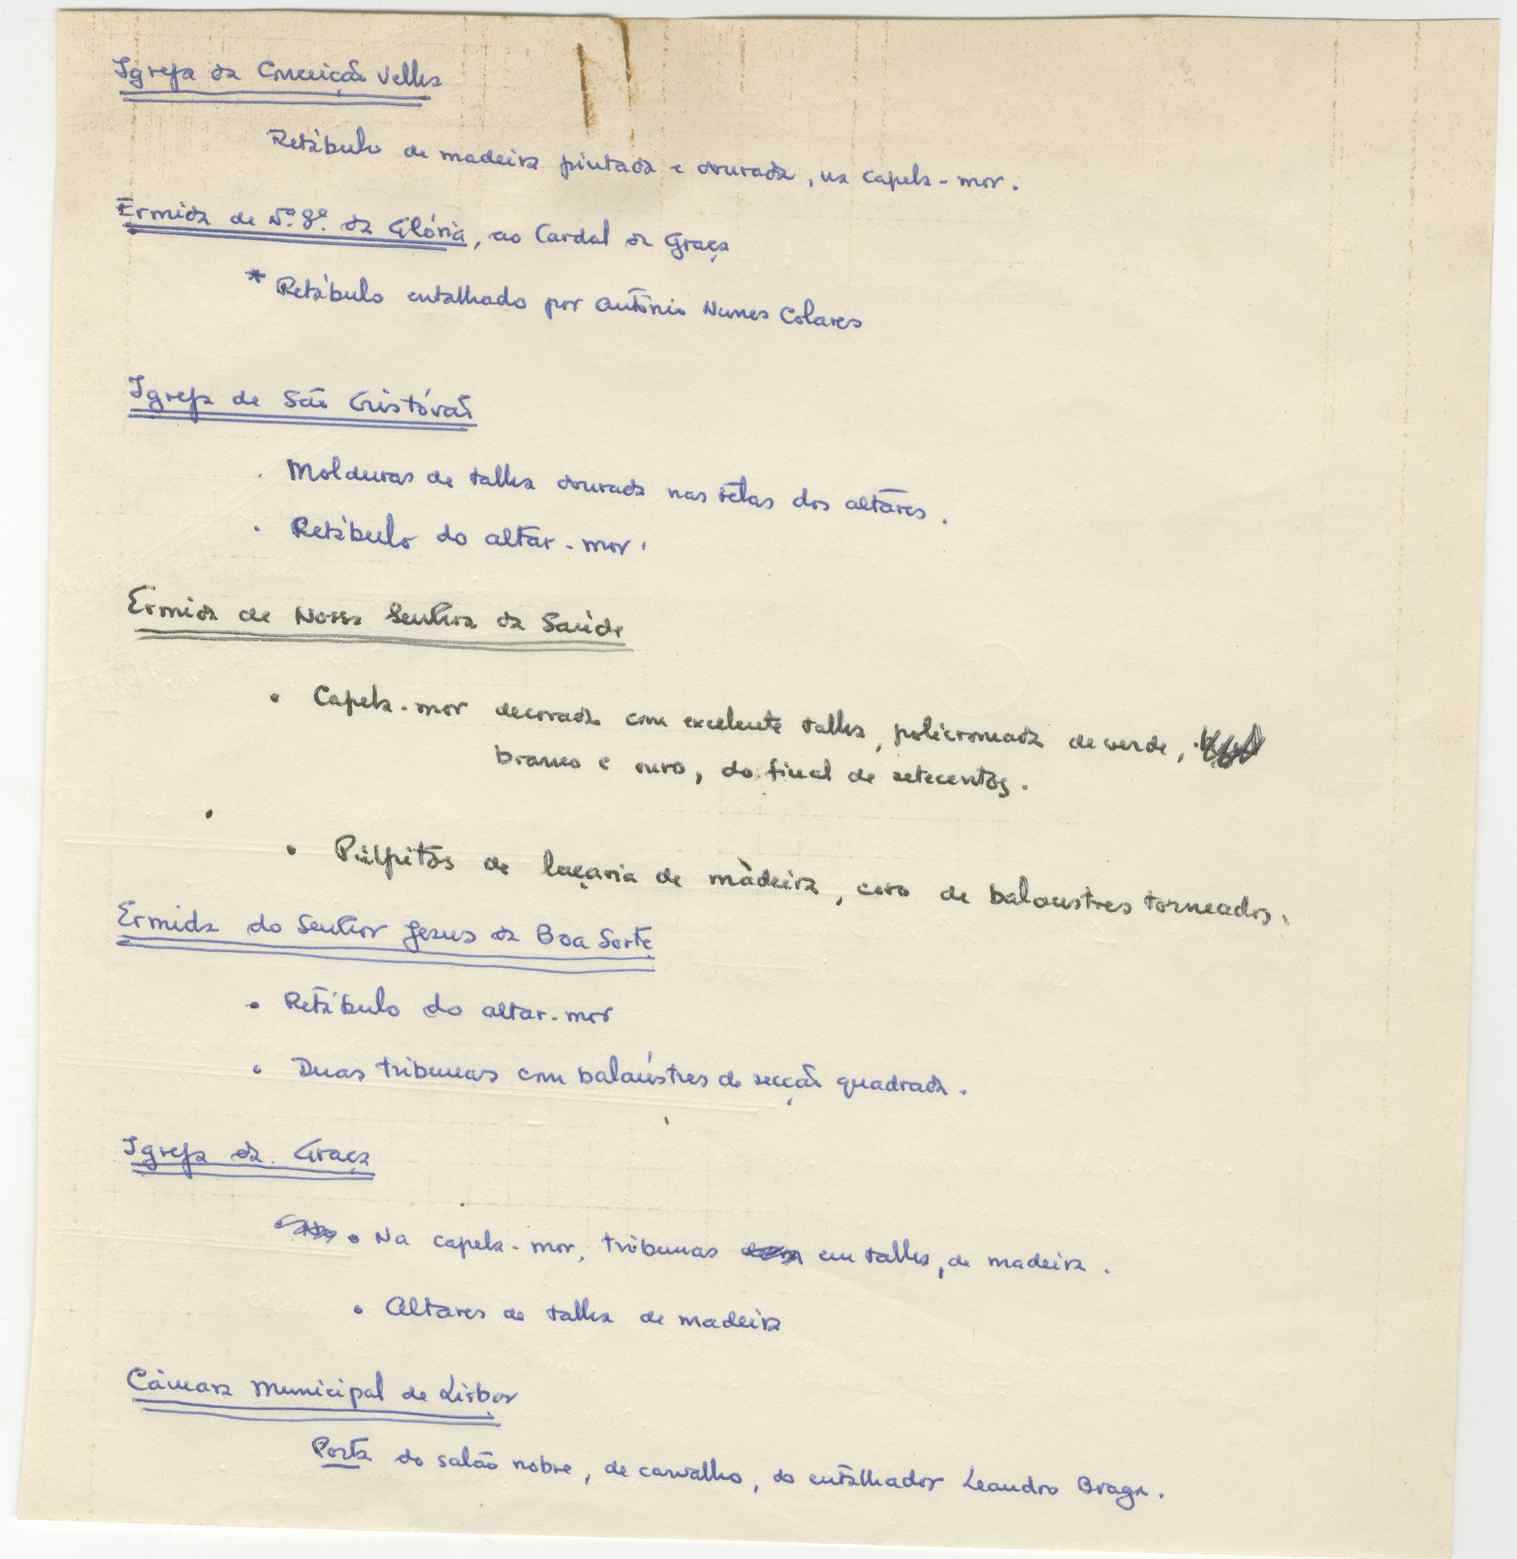 Igreja da Conceição Velha
Retábulo de madeira pintada e dourada, na capela-mor.
Ermida de Nª. Sª. da Glória, ao Cardal da Graça
* Retábulo entalhado por António Nunes Colares
Igreja de São Cristóvão
. Molduras de talha dourada nas telas dos altares.
. Retábulo do altar-mor.
Ermida de Nossa Senhora da Saúde
• Capela-mor decorada com excelente talha, policromada de verde,
branco e ouro, do final de setecentos.
• Púlpitos de laçaria de madeira, coro de balaustres torneados.
Ermida do Senhor Jesus da Boa Sorte
• Retábulo do altar-mor
• Duas tribunas com balaústres de secção quadrada.
Igreja da Graça
• Na capela-mor, tribunas em talha, de madeira.
• Altares de talha de madeira
Câmara Municipal de Lisboa
Porta do salão nobre, de carvalho, do entalhador Leandro Braga.